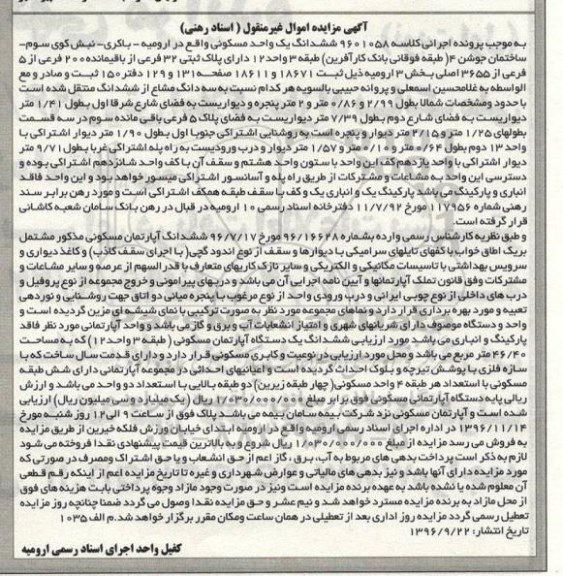 آگهی مزایده اموال غیرمنقول ( اسناد رهنی)
به موجب پرونده اجرائی کلاسه ۹۶۰۱۰۵۸ ششدانگ یک واحد مسکونی واقع در ارومیه - باکری- نبش کوی سوم-
ساختمان جوشن ۴ (طبقه فوقانی بانک کارآفرین) طبقه ۳ واحد ۱۲ دارای پلاک ثبتی ۳۲ فرعی از باقیمانده ۲۰۰ فرعی از ۵
فرعی از ۳۶۵۵ اصلی بخش ۳ ارومیه ذیل ثبت ۱۸۶۷۱ و ۱۸۶۱۱ صفحه ۱۳۱ و ۱۲۹ دفتر ۱۵۰ ثبت و صادر و مع
الواسطه به غلامحسین اسمعلی و پروانه حبیبی بالسویه هر کدام نسبت به سه دانگ مشاع از ششدانگ منتقل شده است
با حدود ومشخصات شمالا بطول ۲/۹۹ و ۰/۸۶ متر و ۲ متر پنجره و دیواریست به فضای شارع شرقا اول بطول ۱/۴۱ متر
دیواریست به فضای شارع دوم بطول ۷/۳۹ متر دیواریست به فضای پلاک ۵ فرعی باقی مانده سوم در سه قسمت
بطولهای ۱/۲۵ متر و ۲/۱۵ متر دیوار و پنجره است به روشنایی اشتراکی جنوبا اول بطول ۱/۹۰ متر دیوار اشتراکی با
واحد ۱۳ دوم بطول ۰/۶۴ متر و ۰/۱۰ متر و ۱/۵۷ متر دیوار و درب ورودیست به راه پله اشتراکی غربا بطول ۹/۷۱ متر
دیوار اشتراکی با واحد یازدهم کف این واحد با ستون واحد هشتم و سقف آن با کف واحد شانزدهم اشتراکی بوده و
دسترسی این واحد به مشاعات و مشترکات از طریق راه پله و آسانسور اشتراکی میسور خواهد بود و این واحد فاقد
انباری و پارکینگ می باشد پارکینگ یک و انباری یک و کف با سقف طبقه همکف اشتراکی است و مورد رهن برابر سند
رهنی شماره ۱۱۷۹۵۶ مورخ ۱۱/۷/۹۲ دفترخانه اسناد رسمی ۱۰ ارومیه در قبال در رهن بانک سامان شعبه کاشانی
قرار گرفته است.
و طبق نظریه کارشناس رسمی وارده بشماره ۹۶/۱۶۶۲۸ مورخ ۹۶/۷/۱۷ ششدانگ آپارتمان مسکونی مذکور مشتمل
بریک اطاق خواب با کفهای تایلهای سرامیکی با دیوارها و سقف از نوع اندود گچی( با اجرای سقف کاذب) و کاغذ دیواری و
سرویس بهداشتی با تاسیسات مکانیکی و الکتریکی و سایر نازک کاریهای متعارف با قدرالسهم از عرصه و سایر مشاعات و
مشترکات وفق قانون تملک آپارتمانها و آیین نامه اجرایی آن می باشد و دربهای پیرامونی و خروج مجموعه از نوع پروفیل و
درب های داخلی از نوع چوبی ایرانی و درب ورودی واحد از نوع مرغوب با پنجره میانی دو اتاق جهت روشنایی و نوردهی
تعبیه و مورد بهره برداری قرار دارد و نماهای مجموعه مورد نظر به صورت ترکیبی با نمای شیشه ای مزین گردیده است و
واحد و دستگاه موصوف دارای شریانهای شهری و امتیاز انشعابات آب و برق و گاز می باشد و واحد آپارتمانی مورد نظر فاقد
پارکینگ و انباری می باشد مورد ارزیابی ششدانگ یک دستگاه آپارتمان مسکونی ( طبقه ۳ واحد ۱۲) که به مساحت
۴۶/۴۰ متر مربع می باشد و محل مورد ارزیابی در نوعیت و کاربری مسکونی قرار دارد و دارای قدمت سال ساخت که با
سازه فلزی با پوشش تیرچه و بلوک احداث گردیده است و اعیانیهای احداثی در مجموعه آپارتمانی دارای شش طبقه
مسکونی با استعداد هر طبقه ۴ واحد مسکونی( چهار طبقه زیرین) دو طبقه بالایی با استعداد دو واحد می باشد و ارزش
ریالی پایه دستگاه آپارتمانی مسکونی فوق برابر مبلغ ۱/۰۳۰/۰۰۰/۰۰۰ ریال (یک میلیارد و سی میلیون ریال) ارزیابی
شده است و آپارتمان مسکونی نزد شرکت بیمه سامان بیمه می باشد پلاک فوق از ساعت ۹ الی ۱۲ روز شنبه مورخ
۱۳۹۶/۱۱/۱۴ در اداره اجرای اسناد رسمی ارومیه واقع در ارومیه ابتدای خیابان ورزش فلکه خیرین از طریق مزایده
به فروش می رسد مزایده از مبلغ ۱/۰۳۰/۰۰۰/۰۰۰ ریال شروع و به بالاترین قیمت پیشنهادی نقدا فروخته می شود
لازم به ذکر است پرداخت بدهی های مربوط به آب، برق ، گاز اعم از حق انشعاب و یا حق اشتراک ومصرف در صورتی که
مورد مزایده دارای آنها باشد و نیز بدهی های مالیاتی و عوارض شهرداری و غیره تا تاریخ مزایده اعم از اینکه رقم قطعی
آن معلوم شده یا نشده باشد به عهده برنده مزایده است ونیز در صورت وجود مازاد وجوه پرداختی بابت هزینه های فوق
از محل مازاد به برنده مزایده مسترد خواهد شد و نیم عشر و حق مزایده نقدا وصول می گردد ضمنا چنانچه روز مزایده
تعطیل رسمی گردد مزایده روز اداری بعد از تعطیلی در همان ساعت ومکان مقرر برگزار خواهد شد.م الف ۱۰۳۵
تاریخ انتشار: ۱۳۹۶/۹/۲۲
کفیل واحد اجرای اسناد رسمی ارومیه